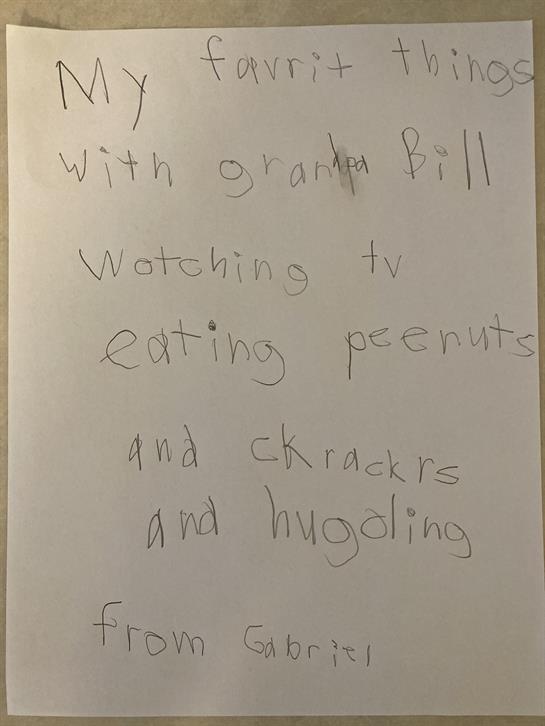 My favrit things
with grandpa Bill
Watching tv
eating peenuts
and ckrackrs
and hugding
from Gabriel